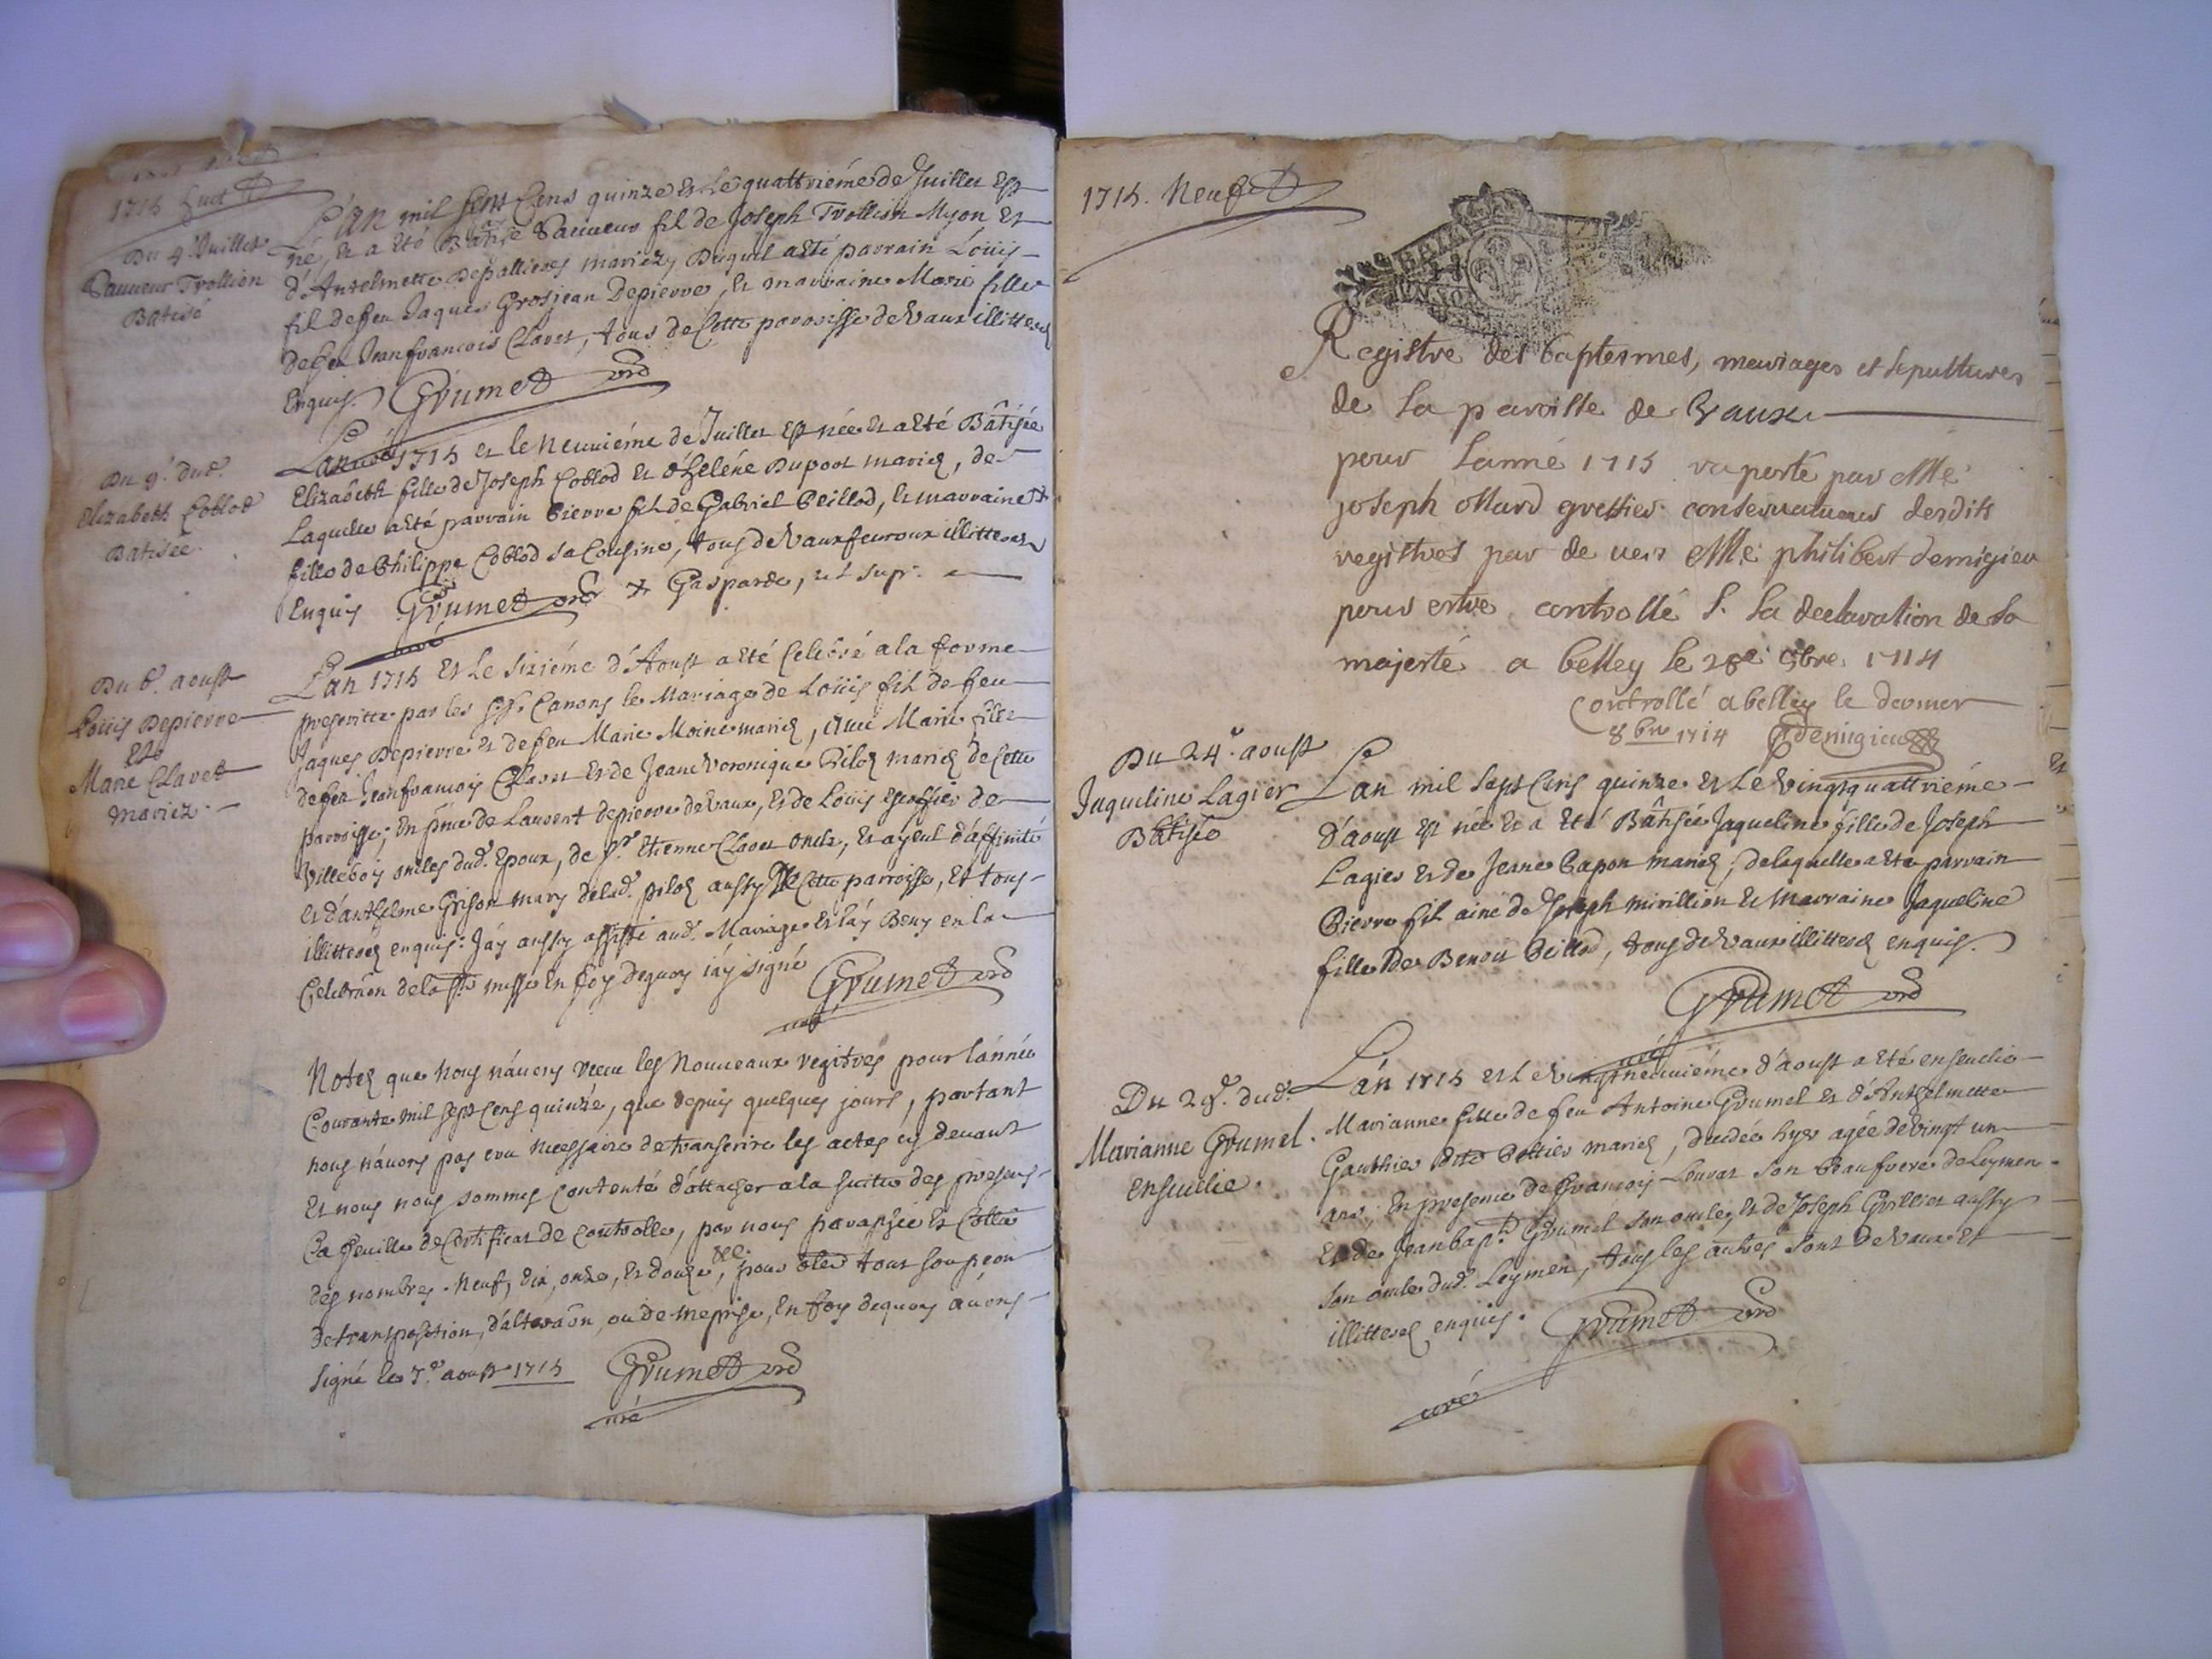 1715 huit
Du 4e. Juillet
Sauveur Trollion
Batisé
L'an mil sept cens quinze et le quattriéme de Juillet est
né, et a eté Bâtisé Sauveur fil de Joseph Trollion Myon et
d'Antelmette Depallieres mariez, Duquel a eté parrain Loüis
fil de feu Jaques Grosjean Depierre, et marraine Marie fille
de feu Jeanfrancois Clavet, tous de Cette parroisse de Vaux illitterez
Enquis. Grumet
curé
Du 9e. dud.
Elizabeth Coblod
Batisée
L'an 1715 et le Neuviéme de Juillet est née et a eté Bâtisée
Elizabeth fille de Joseph Coblod et d'helene Dupont mariez, de
Laquelle a eté parrain Pierre fil de Gabriel Peillod, et marraine
fille de Philippe Coblod sa Cousine, tous de Vaux illitterez
Enquis Grumet Gasparde, ut supr.
curé
Du 6e. aoust
Loüis Depierre
Et
Marie Clavet
mariez.
L'an 1715 et le sixiéme d'Aoust a eté Celebré a la forme
prescritte par les SS. Canons le Mariage de Loüis fil de feu
Jaques Depierre et de feu Marie Moine mariez, avec Marie fille
de feu Jeanfrancois Clavet et de Jeane Veronique Piloz mariez de Cette
parroisse; En pnce de Laurent depierre de Vaux, et de Loüis escoffier de
Villebois oncles dud. Epoux, de Sr. Etienne Clavet oncle, et ayeul d'affinité
et d'anthelme Grison mary de lad. piloz aussy de Cette parroisse, et tous
illitterez enquis: J'ay aussy assisté aud. Mariage et l'ay Beny en la
Celebraon de la Ste messe En foy dequoy j'ay signé Grumet
curé
Notez que nous n'avons receu les Nouveaux regitres pour l'année
Courante mil sept cens quinze, que depuis quelques jours, partant
nous n'avons pas cru necessaire de transcrire les actes cy devant
Et nous nous sommes contenté d'attacher a la suitte des presens
La feuille de Certificat de Controlle, par nous paraphée et Cottée
des nombres. Neuf, dix, onze, et douze, &c. pour oter tout soupçon
de transposition, d'alteraon, ou de meprise, En foy dequoy avons
signé le 7e. aoust 1715 Grumet
curé
1715. Neuf
Registre des baptesmes, mariages et sepultures
de la paroisse de Vaux
pour lanné 1715 raporté par Me
joseph ollard greffier conservateur desdits
registres par de vers Me philibert demigieu
pour estre controllé S. la declaration de sa
majesté a belley le 28e 8bre 1714
Controllé a belley le dernier
8bre 1714 demigieu
Du 24e. aoust
Jaqueline Lagier
Bâtisée
L'an mil sept cens quinze et le vingtquattriéme
d'aoust est née et a eté Bâtisée Jaqueline fille de Joseph
Lagier et de Jeane Capon mariez; de laquelle a eté parrain
Pierre fil ainé de Joseph mirillion et marraine Jaqueline
fille de Benoit Peillod, tous de Vaux illitterez enquis.
Grumet
curé
Du 29e. dud.
Marianne Grumel.
Ensevelie.
L'an 1715 et Le Vingtneuviéme d'aoust a eté ensevelie
Marianne fille de feu Antoine Grumel et d'Anthelmette
Gauthier dite Pottier mariez, decedée hyer agée de vingt un
ans, En presence de francois Louvat son Beaufrere de Leymen
et de Jeanbapt. Grumel son oncle, et de Joseph Grillet aussy
son oncle dud. Leymen, tous les autres sont de Vaux et
illitterez enquis. Grumet
curé